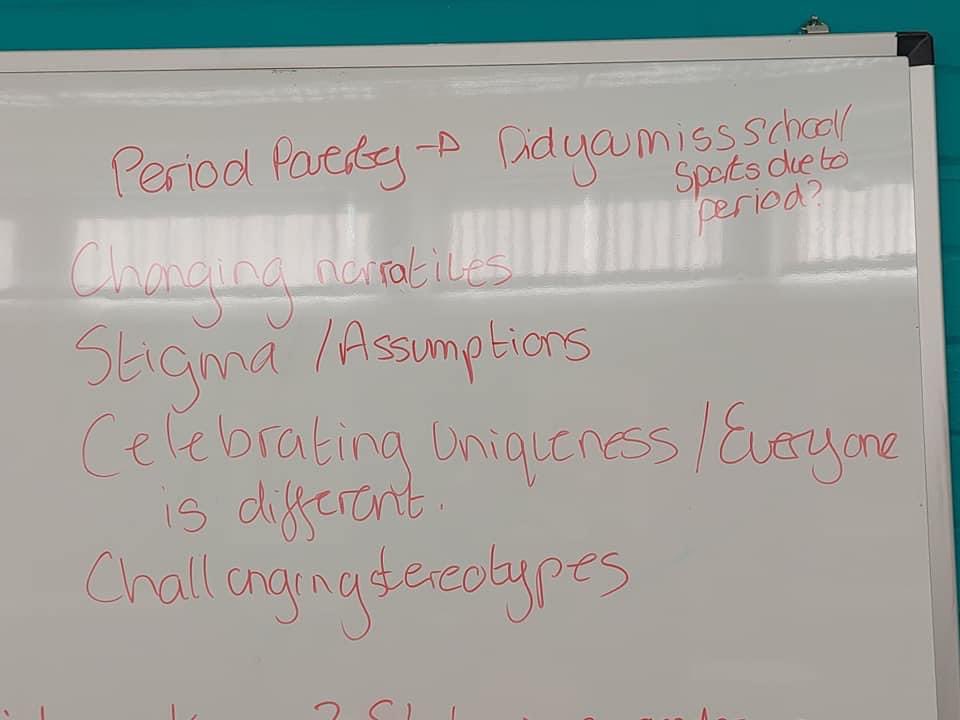 Period Poverty → Did you miss school/
sports due to
period?
Changing narratives
Stigma / Assumptions
Celebrating Uniqueness / Everyone
is different.
Challenging stereotypes